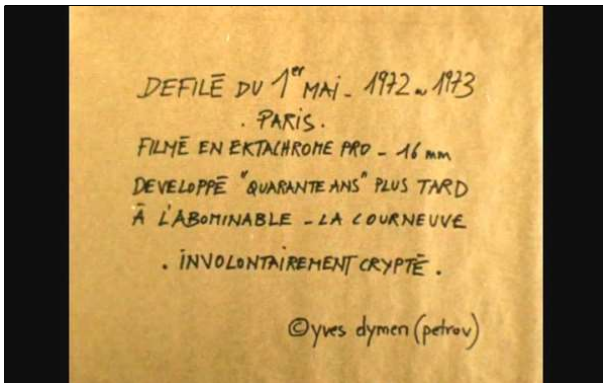 DEFILÉ DU 1er MAI - 1972 ou 1973
. PARIS .
FILMÉ EN EKTACHROME PRO - 16 mm
DEVELOPPÉ "QUARANTE ANS" PLUS TARD
À L'ABOMINABLE - LA COURNEUVE
. INVOLONTAIREMENT CRYPTÉ .
©yves dymen (petrov)